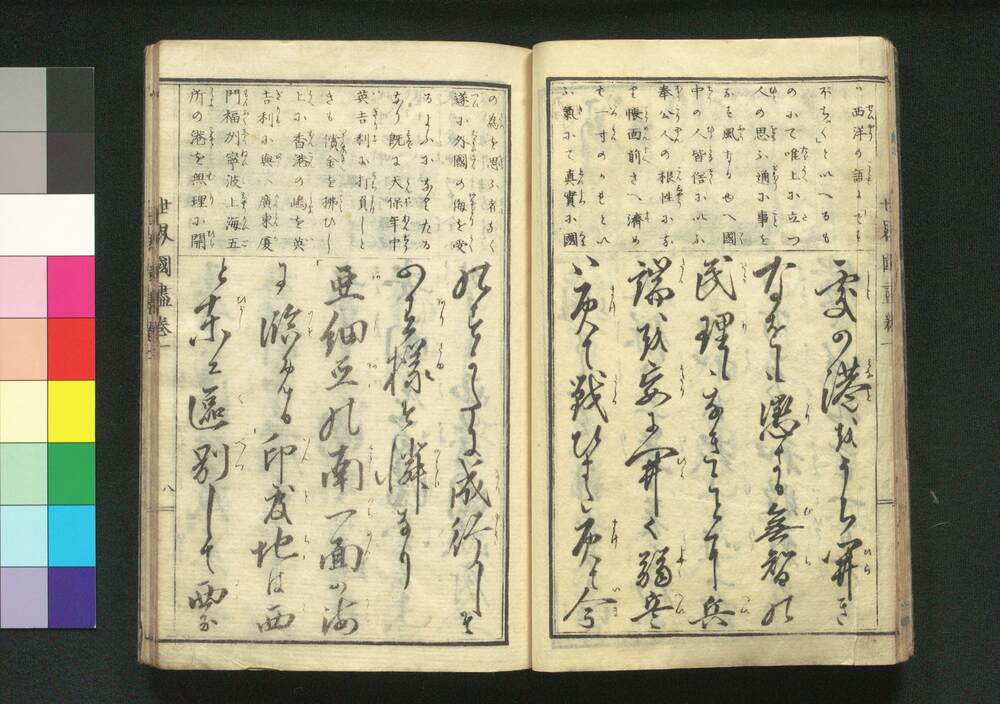 西洋の語にです
ぽちつく」といへるも
のにて唯上に立つ
人の思ふ通に事を
なす風なるゆへ國
中の人皆俗にいふ
奉公人の根性にな
り帳面前さへ濟め
ば一寸のがれとい
ふ氣にて真實に國
處の港をうち開き
なをも懲ざる無智の
民理もなきことに兵
端を妄に開く弱兵
は負て戦ひまた負て今
の為を思ふ者なく
遂に外國の侮を受
るよふになりたる
なり既に天保年中
英吉利に打負しと
きも償金を拂ひし
上に香港の嶋を英
吉利に與へ廣東厦
門福州寧波上海五
所の港を無理に開
のすがたに成行しそ
の有様ぞ憐なり
亜細亜の南一面の海
に臨める印度地は西
と東に區別して西な
世界國盡 巻一
八